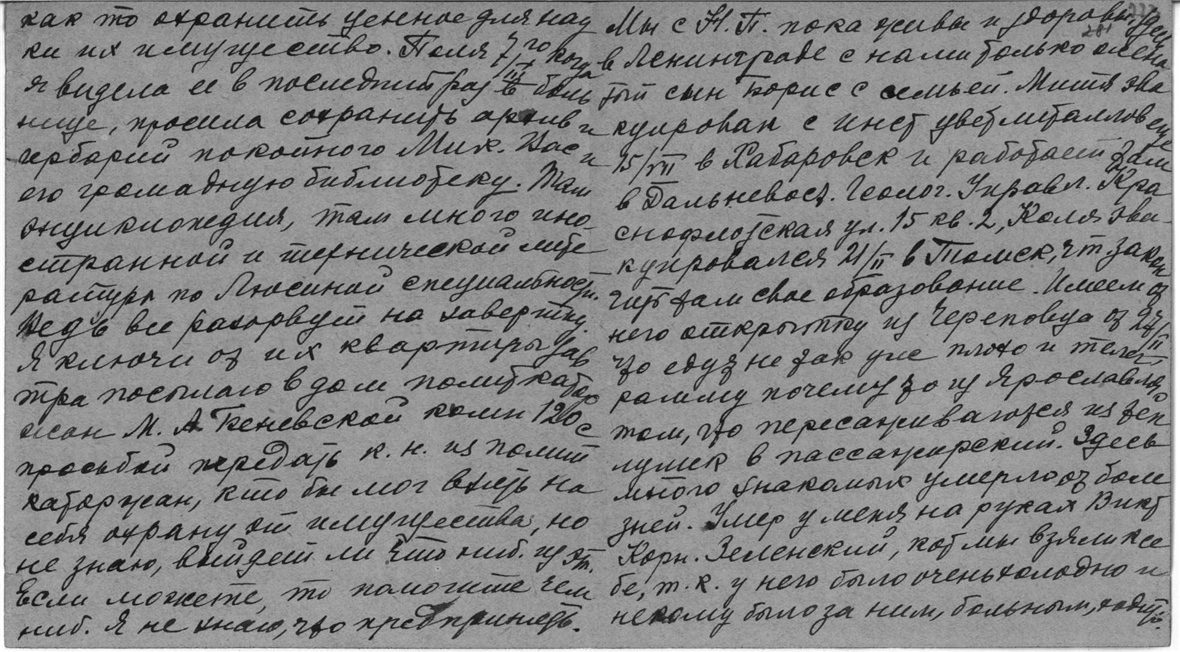 как то охранить ценное для нау
ки их имущество. Поля 7го когда
я видела ее в последний раз в боль
нице, просила сохранить архив и
гербарий покойного Мих. Вас и
его громадную библиотеку. Там
энциклопедия, там много ино
странной и технической лите
ратуры по Люсиной специальности.
Ведь все разорвут на завертку.
Я ключи от их квартиры зав
тра посылаю в дом политкатор
жан М. А. Беневской комн 120 с
просьбой передать к. н. из полит
каторжан, кто бы мог взять на
себя охрану от имущества, но
не знаю, выйдет ли что ниб. из эт.
Если можете, то помогите чем
ниб. Я не знаю, что предпринять.
Мы с Н. П. пока живы и здоровы, здесь
281
в Ленинграде с нами только
тый сын Борис с семьей. Митя эва
куирован с инст цветметаллов еще
15/VII в Хабаровск и работает там
в Дальневост. Геолог. Управл. Кра
снофлотская ул. 15 кв. 2, Коля эва-
куировался 21/II в Томск, чт закон
чить там свое образование. Имеем от
него открытку из Череповца от 24/II
что едут не так уже плохо и телег
рамму почему то из Ярославля
том, что пересаживаются из теп
лушек в пассажирский. Здесь
много знакомых умерло от боле
зней. Умер у меня на руках Викт
Корн. Зеленский, кот мы взяли к се
бе, т. к. у него было очень холодно и
некому было за ним, больным, ходить.